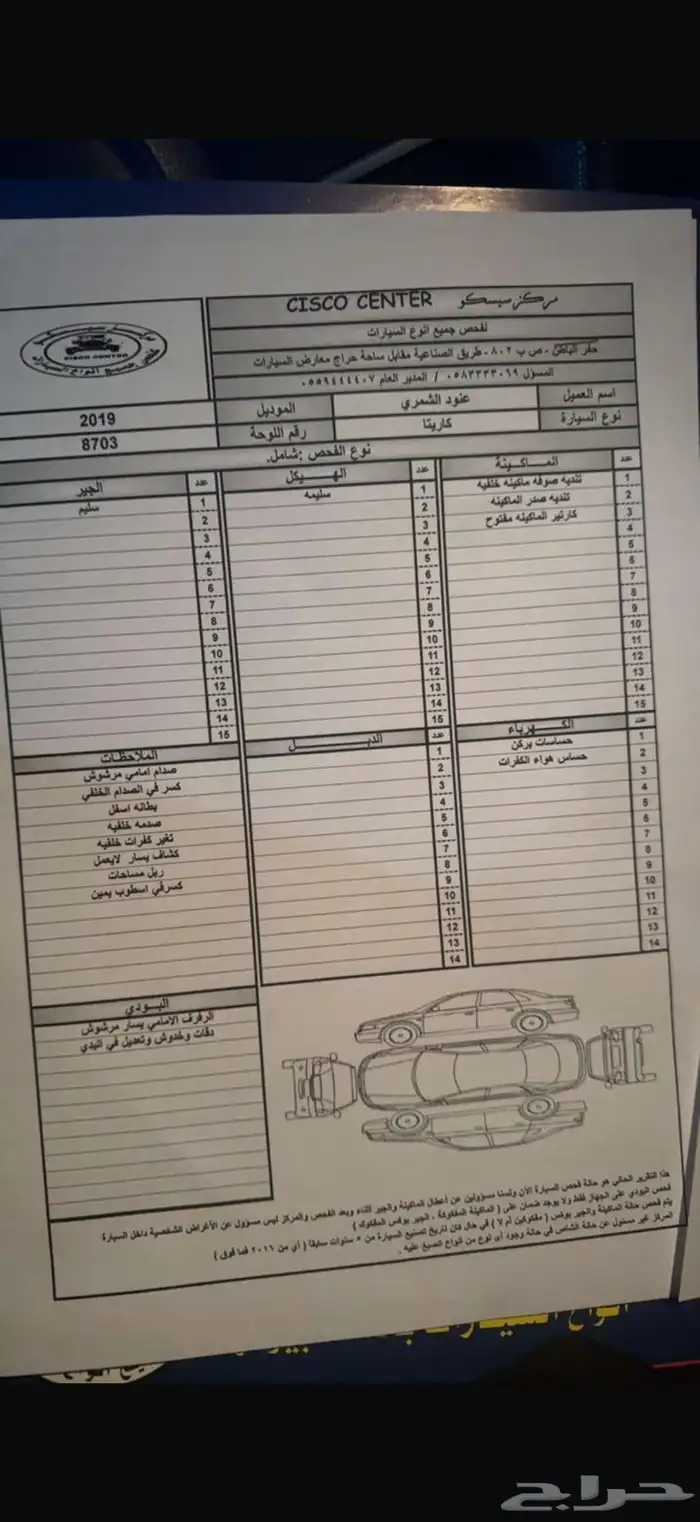 مركز سيسكو CISCO CENTER
لفحص جميع انوع السيارات
حفر الباطن - ص ب ٨٠٢ - طريق الصناعية مقابل ساحة حراج معارض السيارات
المسؤل ٠٥٨٣٣٣٣٠٦٩ / المدير العام ٠٥٥٩٤٤٤٤٠٧
CISCO CENTER
اسم العميل عنود الشمري الموديل 2019
نوع السيارة كاريتا رقم اللوحة 8703
نوع الفحص :شامل.
عدد المـــاكـيـنة
1 تنديه صوفه ماكينه خلفيه
2 تنديه صدر الماكينه
3 كارتير الماكينه مفتوح
4
5
6
7
8
9
10
11
12
13
14
15
عدد الهـــيكل
1 سليمه
2
3
4
5
6
7
8
9
10
11
12
13
14
15
عدد الجير
1 سليم
2
3
4
5
6
7
8
9
10
11
12
13
14
15
عدد الكـــهرباء
1 حساسات بركن
2 حساس هواء الكفرات
3
4
5
6
7
8
9
10
11
12
13
14
عدد الدبـــــل
1
2
3
4
5
6
7
8
9
10
11
12
13
14
الملاحظات
صدام امامي مرشوش
كسر في الصدام الخلفي
بطانه اسفل
صدمه خلفيه
تغير كفرات خلفيه
كشاف يسار لايعمل
ربل مساحات
كسرفي اسطوب يمين
البـــودي
الرفرف الامامي يسار مرشوش
دقات وخدوش وتعديل في البدي
هذا التقرير الحالي هو حالة فحص السيارة الآن ولسنا مسؤولين عن أعطال الماكينة والجير أثناء وبعد الفحص والمركز ليس مسؤول عن الأغراض الشخصية داخل السيارة
فحص البودي على الجهاز فقط ولا يوجد ضمان على ( الماكينة المفكوكة ، الجير بوكس المفكوك )
يتم فحص حالة الماكينة والجير بوكس ( مفكوكين أم لا ) في حال كان تاريخ تصنيع السيارة من ٥ سنوات سابقاً ( أي من ٢٠١٦ فما فوق )
المركز غير مسئول عن حالة الشاص في حالة وجود أى نوع من انواع الصبغ عليه .
حراج